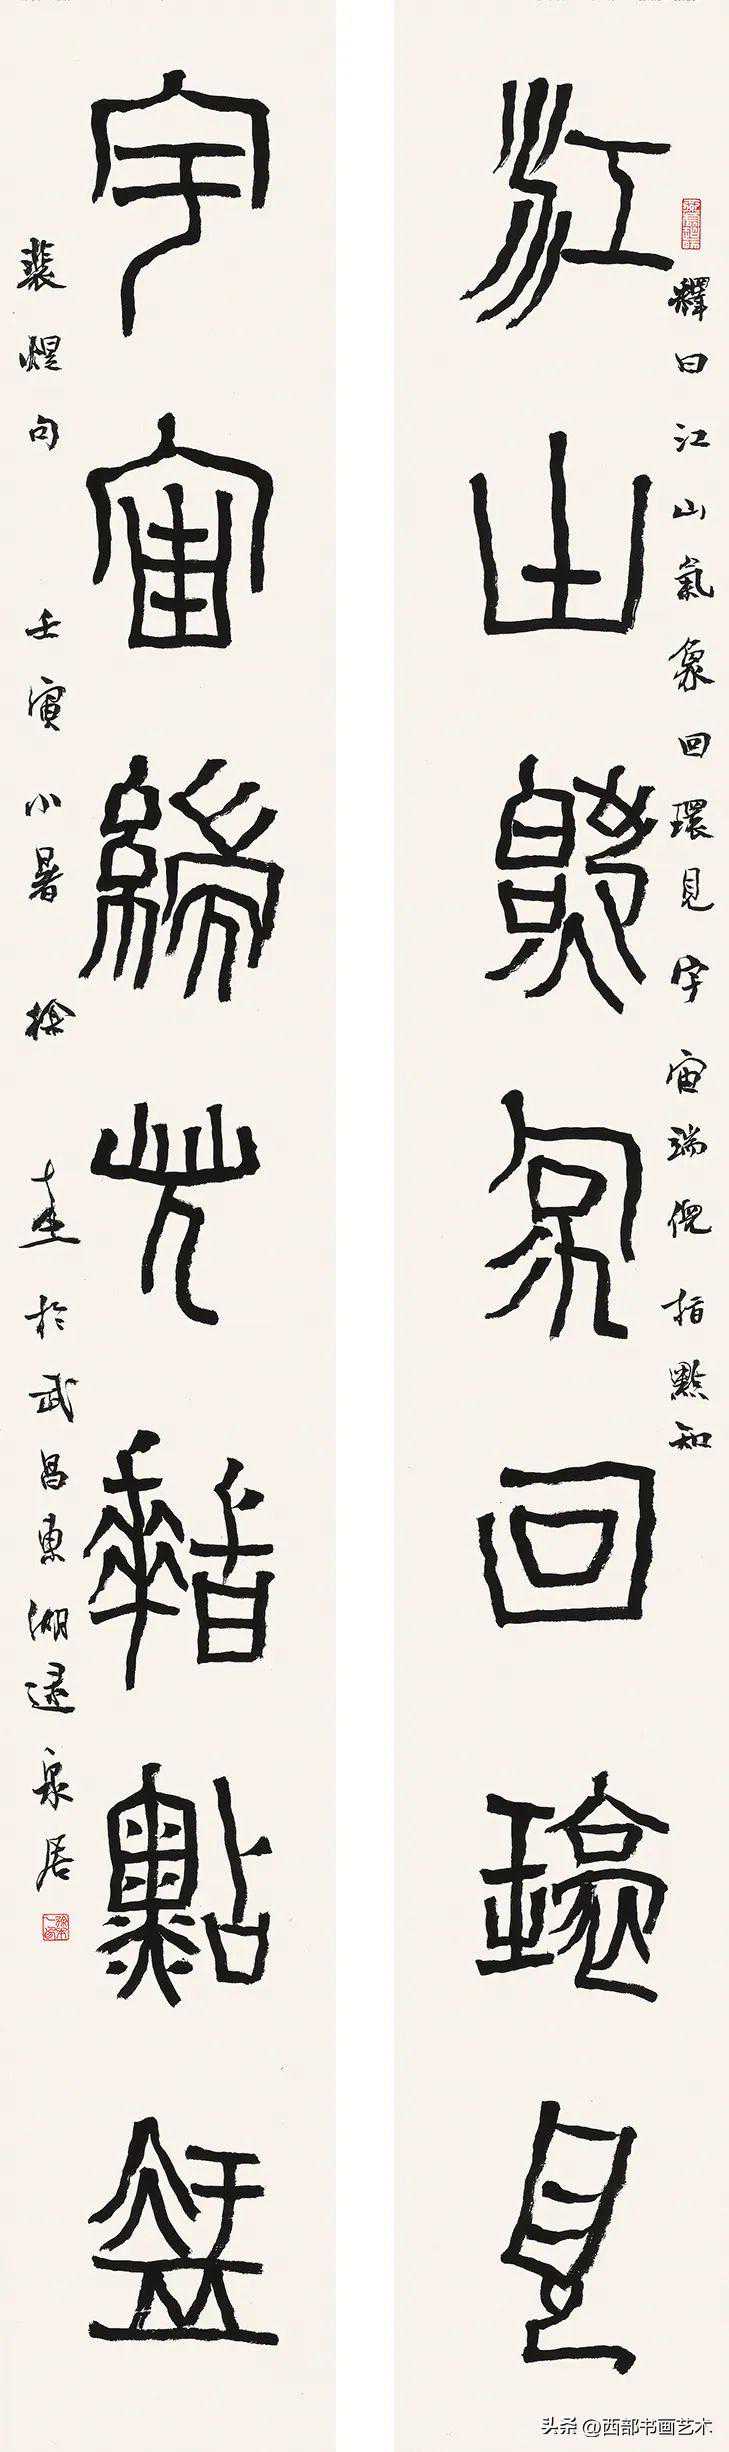 江山氣象回環見
釋曰江山氣象回環見宇宙端倪指點知
宇宙端倪指點知
裴煜句 壬寅小暑 徐本一於武昌東湖泉居
头条 @西部书画艺术